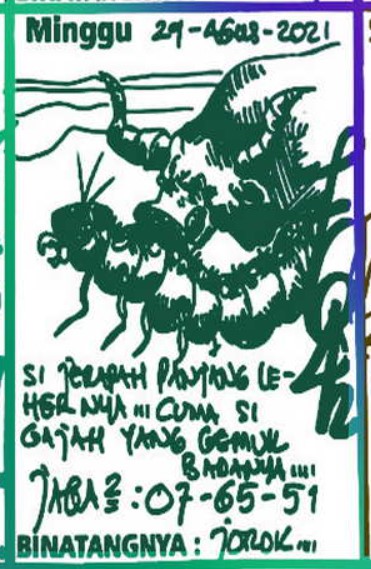 Minggu 29-AGUS-2021
SI JERAPAH PANJANG LE-
HER NYA ... CUMA SI
GAJAH YANG GEMUK
BADANNYA ....
JAGA2 : 07-65-51
BINATANGNYA : JOROK ...